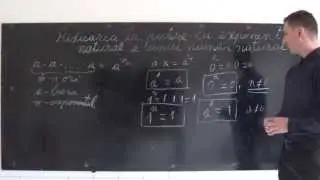 Ridicarea la putere cu exponent
natural a unui număr natural
a·a·...·a = aⁿ
n ori
a - baza
n - exponentul
a·a = a²
a¹ = a
1ⁿ = 1·1·1 = 1
1ⁿ = 1
0ⁿ = 0·0·0 = 0
0ⁿ = 0, n≠0
a⁰ = 1, a≠0